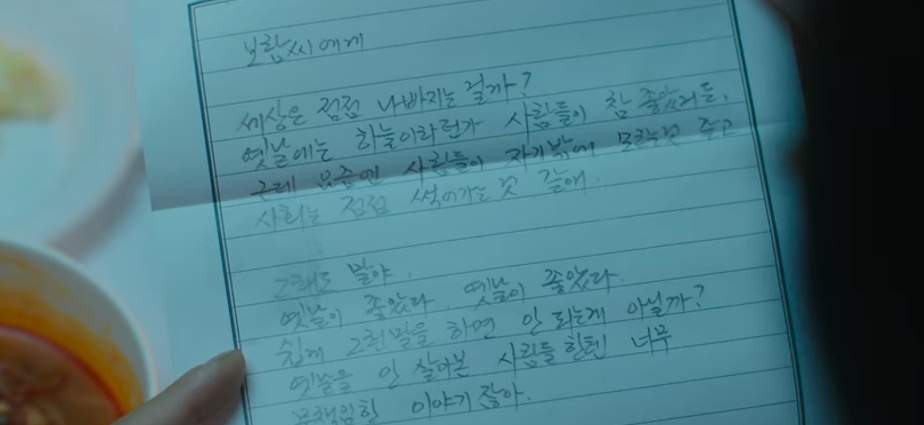 보람씨에게
세상은 점점 나빠지는 걸까?
옛날에는 하늘이라던가 사람들이 참 좋았거든.
근데 요즘엔 사람들이 자기밖에 모르는것 같고
사회는 점점 썩어가는것 같애.
그래도 말야.
옛날이 좋았다. 옛날이 좋았다.
쉽게 그런말을 하면 안 되는게 아닐까?
옛날을 안 살아본 사람들 한텐 너무
무책임한 이야기잖아.